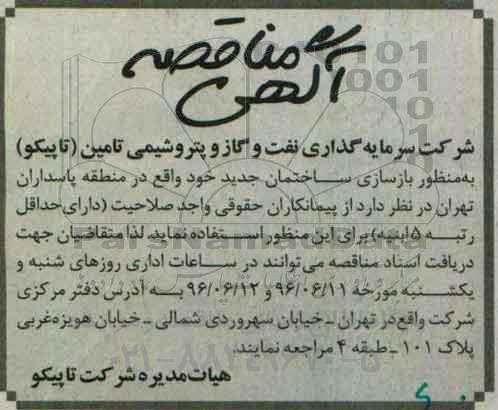 آگهی مناقصه
شرکت سرمایه گذاری نفت و گاز و پتروشیمی تامین (تاپیکو)
به‌منظور بازسازی ساختمان جدید خود واقع در منطقه پاسداران
تهران در نظر دارد از پیمانکاران حقوقی واجد صلاحیت (دارای حداقل
رتبه ۵ ابنیه) برای این منظور استفاده نماید. لذا متقاضیان جهت
دریافت اسناد مناقصه می‌توانند در ساعات اداری روزهای شنبه و
یکشنبه مورخه ۹۶/۰۶/۱۱ و ۹۶/۰۶/۱۲ به آدرس دفتر مرکزی
شرکت واقع در تهران ـ خیابان سهروردی شمالی ـ خیابان هویزه غربی
پلاک ۱۰۱ ـ طبقه ۴ مراجعه نمایند.
هیات مدیره شرکت تاپیکو
ParsNamadData